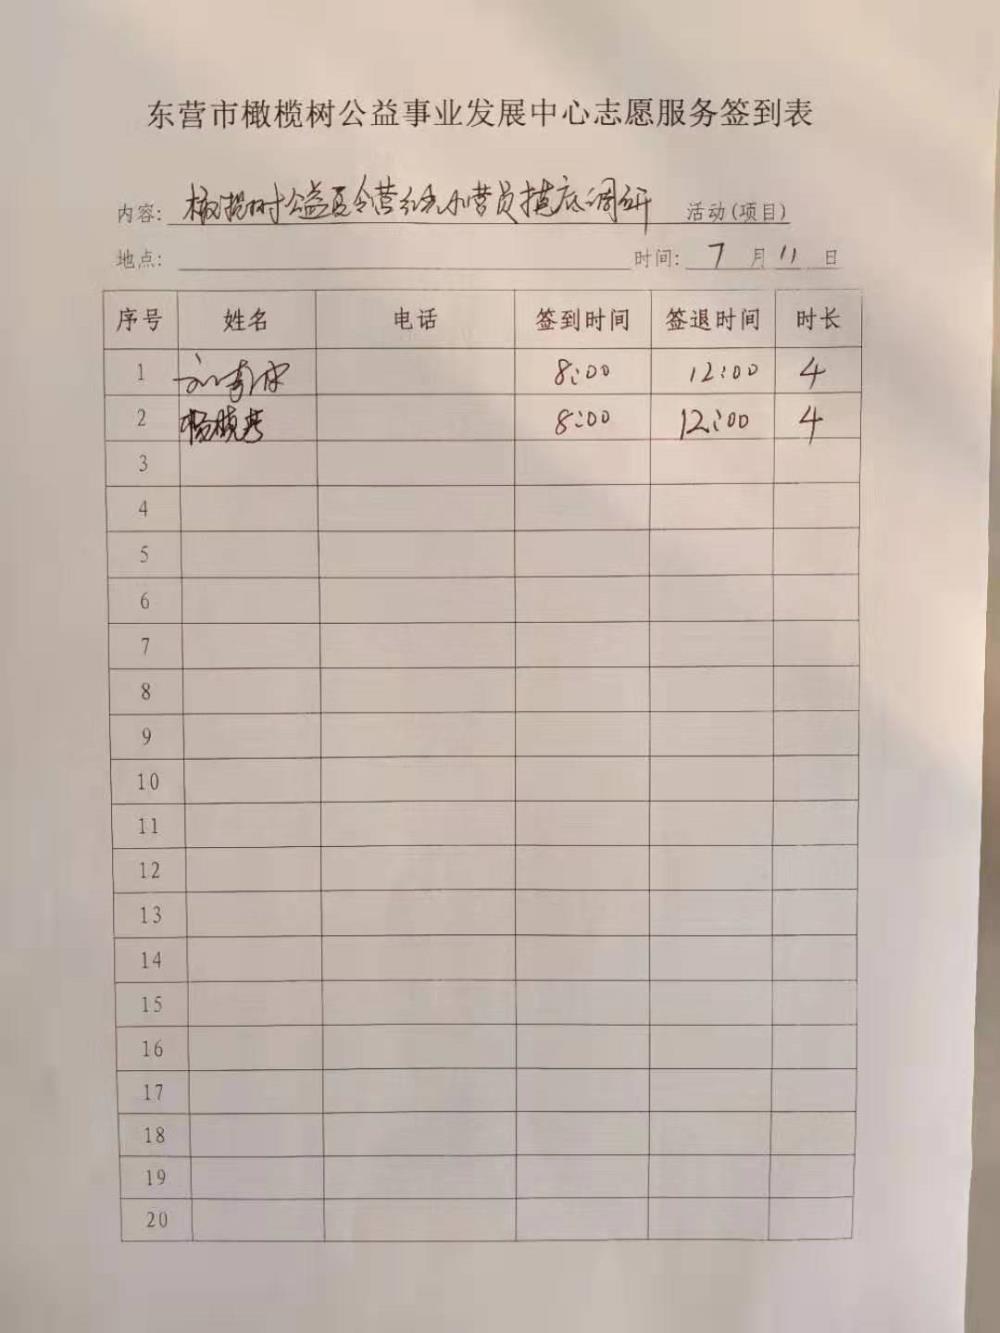 东营市橄榄树公益事业发展中心志愿服务签到表
内容: 橄榄树公益夏令营 小营员摸底调研 活动(项目)
地点: 时间: 7 月 11 日
序号 姓名 电话 签到时间 签退时间 时长
1 8:00 12:00 4
2 杨晓 8:00 12:00 4
3
4
5
6
7
8
9
10
11
12
13
14
15
16
17
18
19
20